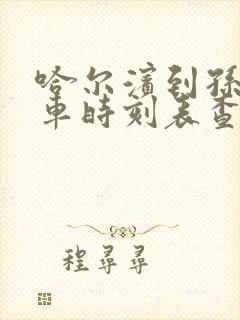 哈尔滨到孙
车时刻表查
程寻寻